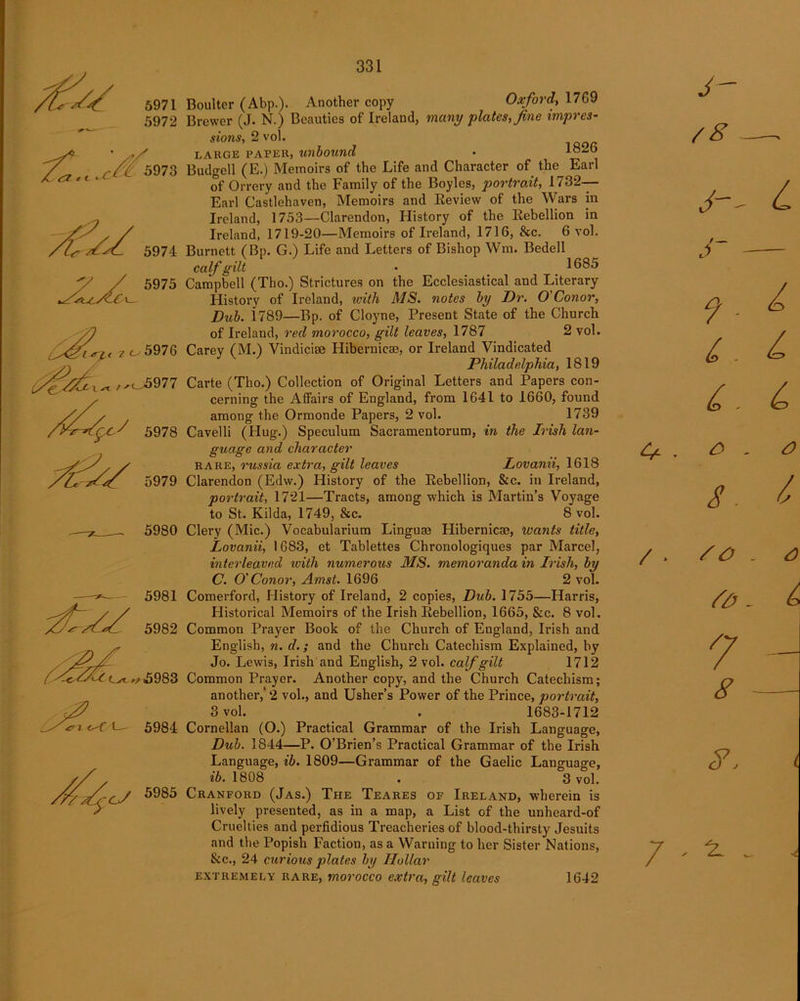 331
5971 Boulter (Abp.). Another copy Oxford, 1769
5972 Brewer (J. N.) Beauties of Ireland, many plates, fine impres-
sions, 2 vol.
LARGE PAPER, unbound . 1826
5973 Budgell (E.) Memoirs of the Life and Character of the Earl
of Orrery and the Family of the Boyles, portrait, 1732—
Earl Castlehaven, Memoirs and Review of the Wars in
Ireland, 1753—Clarendon, History of the Rebellion in
Ireland, 1719-20—Memoirs of Ireland, 1716, &c. 6 vol.
5974 Burnett (Bp. G.) Life and Letters of Bishop Wm. Bedell
calf gilt . 1685
5975 Campbell (Tho.) Strictures on the Ecclesiastical and Literary
History of Ireland, with MS. notes by Dr. O'Conor,
Dub. 1789—Bp. of Cloyne, Present State of the Church
of Ireland, red morocco, gilt leaves, 1787 2 vol.
5976 Carey (M.) Vindiciæ Hibernicæ, or Ireland Vindicated
Philadelphia, 1819
5977 Carte (Tho.) Collection of Original Letters and Papers con-
cerning the Affairs of England, from 1641 to 1660, found
among the Ormonde Papers, 2 vol. 1739
5978 Cavelli (Hug.) Speculum Sacramentorum, in the Irish lan-
guage and character
RARE, russia extra, gilt leaves Lovanii, 1618
5979 Clarendon (Edw.) History of the Rebellion, &c. in Ireland,
portrait, 1721—Tracts, among which is Martin's Voyage
to St. Kilda, 1749, &c. 8 vol.
5980 Clery (Mic.) Vocabularium Linguæ Hibernicæ, wants title,
Lovanii, 1683, et Tablettes Chronologiques par Marcel,
interleaved with numerous MS. memoranda in Irish, by
C. O'Conor, Amst. 1696 2 vol.
5981 Comerford, History of Ireland, 2 copies, Dub. 1755—Harris,
Historical Memoirs of the Irish Rebellion, 1665, &c. 8 vol.
5982 Common Prayer Book of the Church of England, Irish and
English, n. d.; and the Church Catechism Explained, by
Jo. Lewis, Irish and English, 2 vol. calf gilt 1712
5983 Common Prayer. Another copy, and the Church Catechism;
another, 2 vol., and Usher's Power of the Prince, portrait,
3 vol. . 1683-1712
5984 Cornellan (O.) Practical Grammar of the Irish Language,
Dub. 1844—P. O'Brien's Practical Grammar of the Irish
Language, ib. 1809—Grammar of the Gaelic Language,
ib. 1808 . 3 vol.
5985 CRANFORD (JAS.) THE TEARES OF IRELAND, wherein is
lively presented, as in a map, a List of the unheard-of
Cruelties and perfidious Treacheries of blood-thirsty Jesuits
and the Popish Faction, as a Warning to her Sister Nations,
&c., 24 curious plates by Hollar
EXTREMELY RARE, morocco extra, gilt leaves 1642